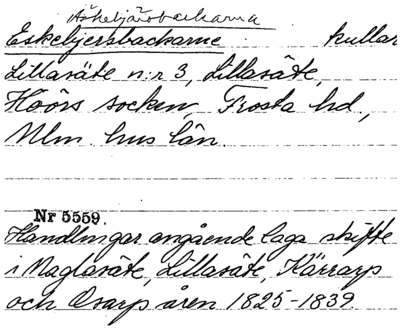 Äskebjärsbackarna
Eskebjersbackarne kullar
Lillasäte n:r 3, Lillasäte,
Höörs socken, Frosta hd,
Mlm. hus län.
Nr 5559.
Handlingar angående laga skifte
i Maglasäte, Lillasäte, Kärrarp
och Osarp åren 1825-1839.